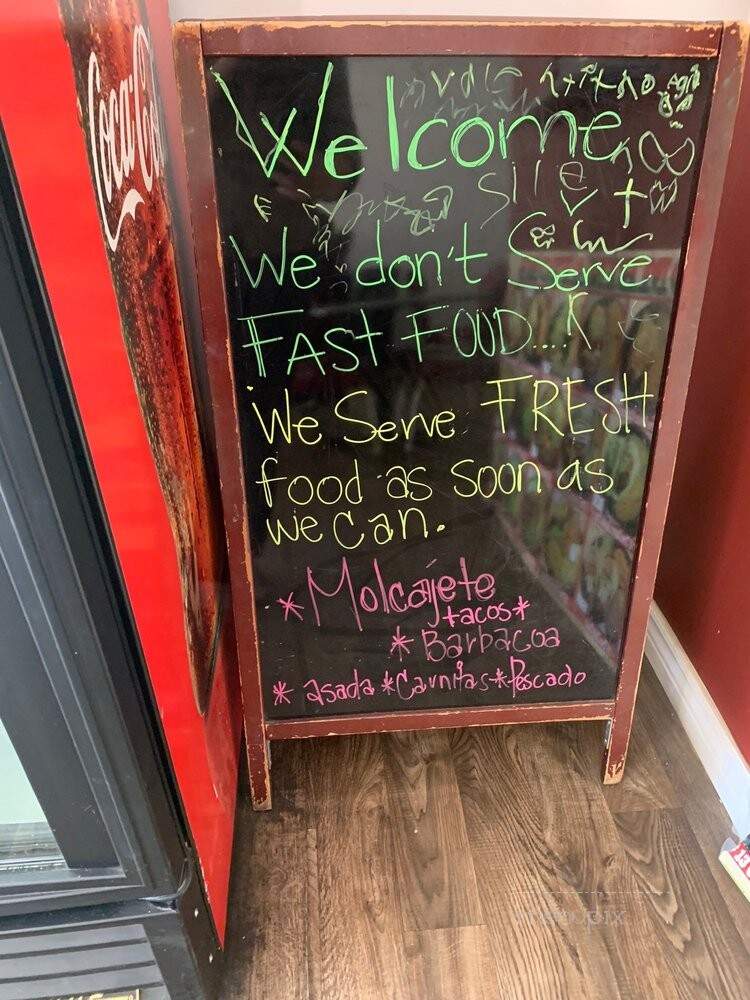 Coca-Cola
Welcome
We don't Serve
FAST FOOD....
We Serve FRESH
food as soon as
we can.
* Molcajete
tacos *
* Barbacoa
* asada * Carnitas * Pescado